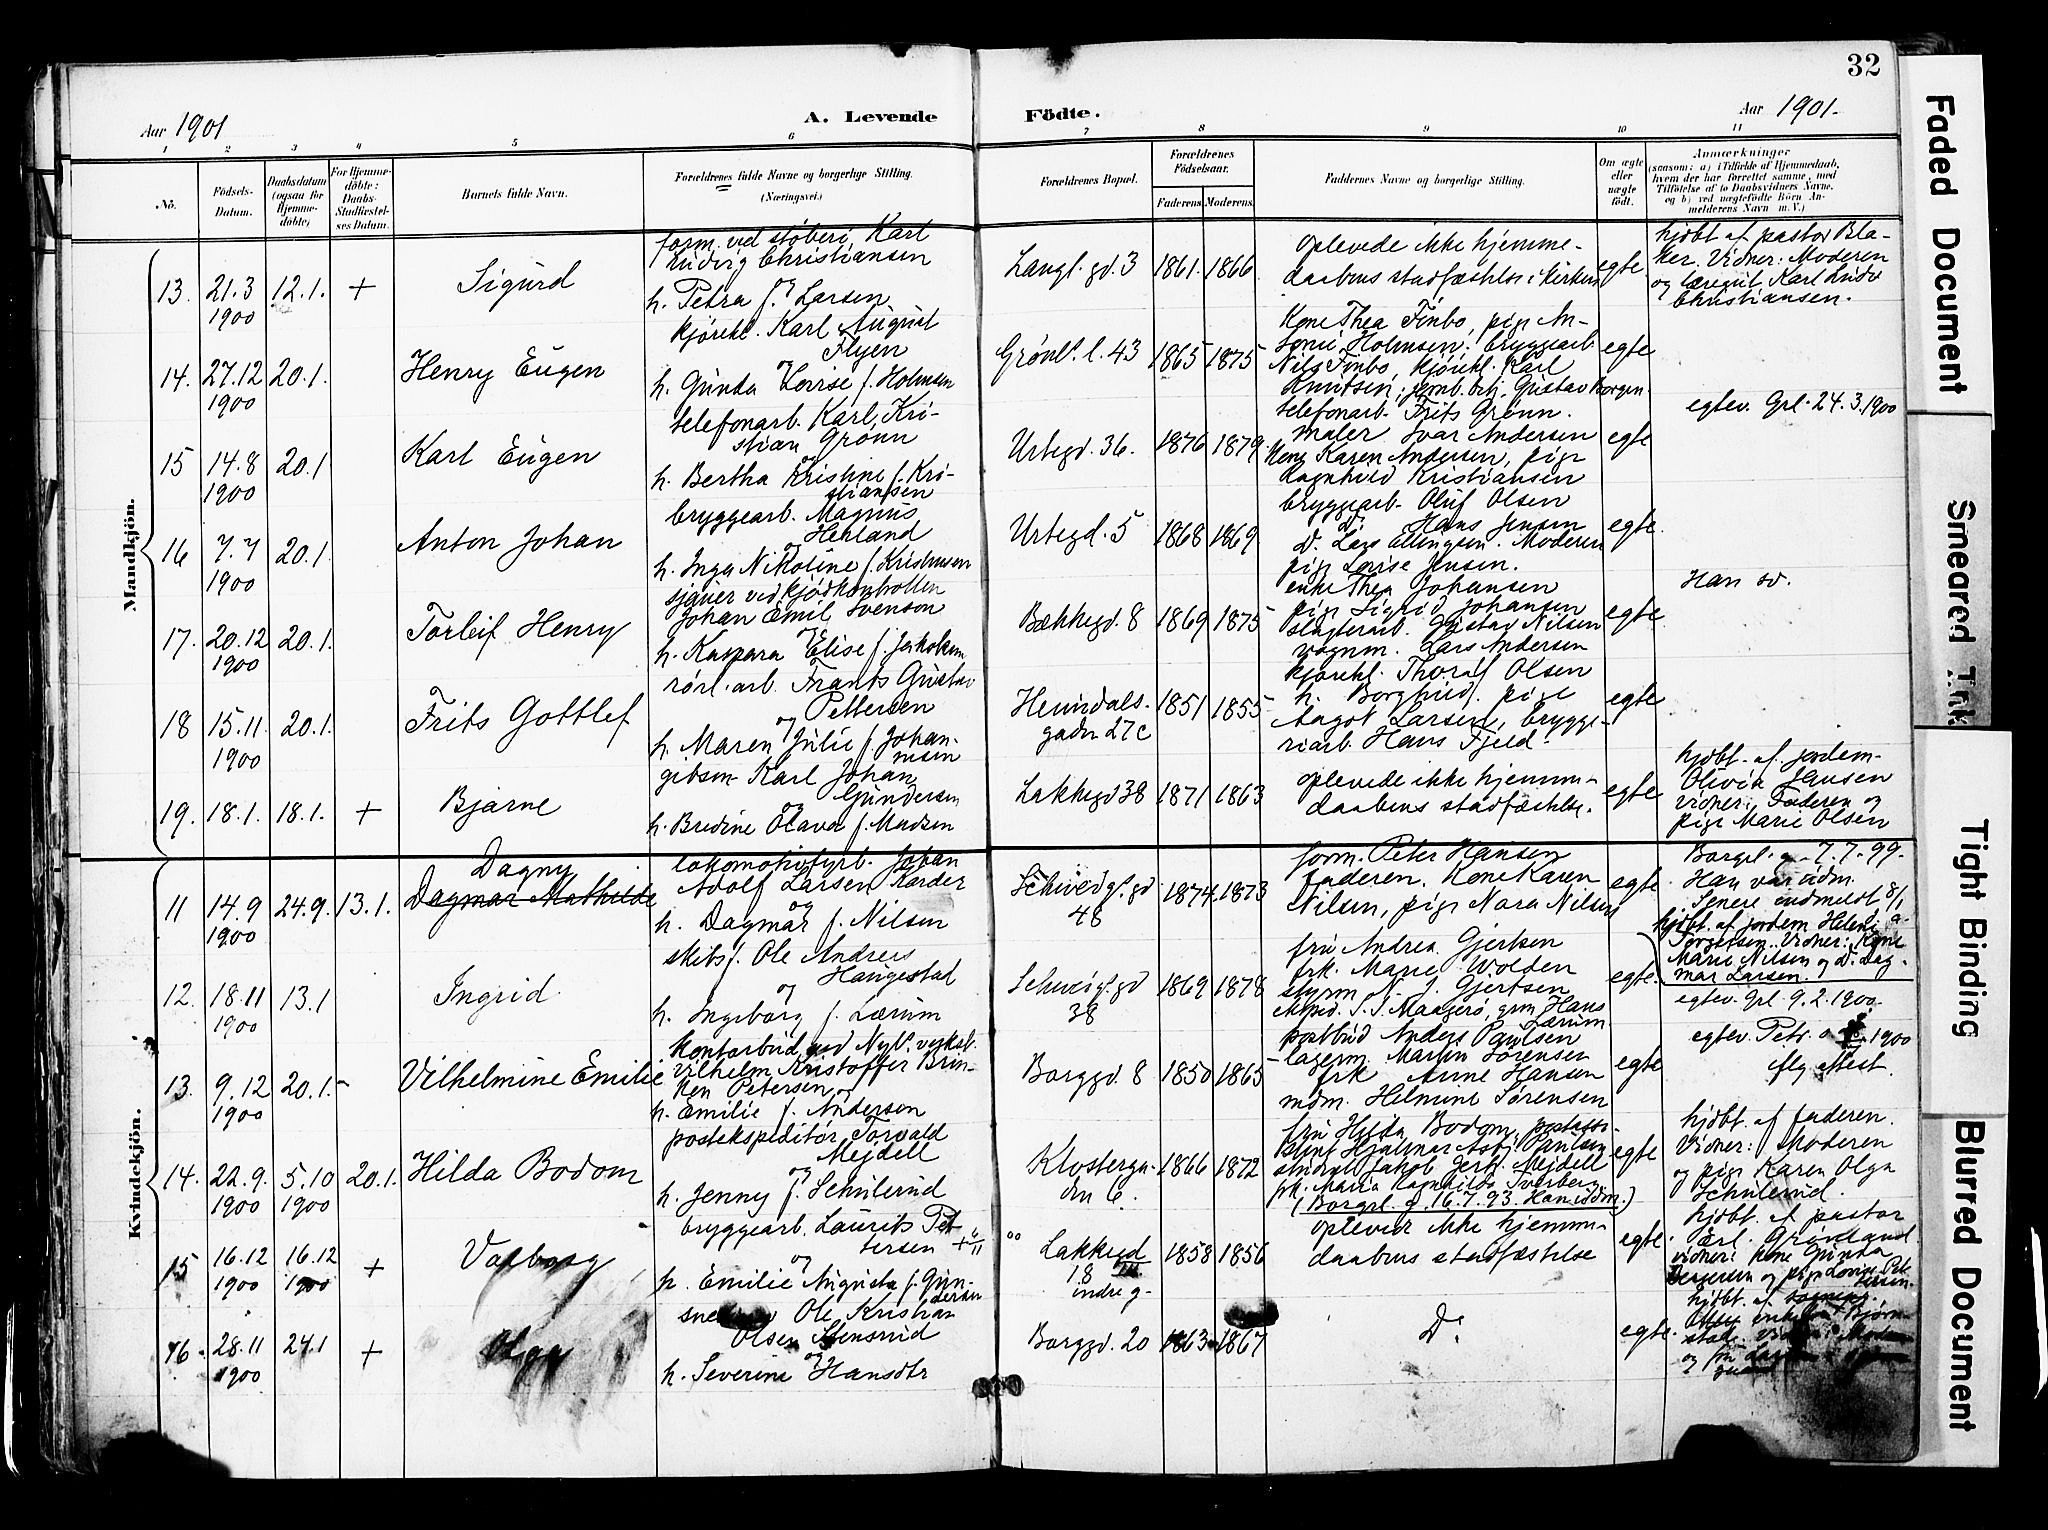 32
Aar 1901
A. Levende
Födte.
Aar 1901.
1 2 3 4 5 6 7 8 9 10 11
No.
Födsels-
Datum.
Daabsdatum
(ogsaa for
Hjemme-
döbte)
For Hjemme-
döbte:
Daabs-
Stadfæstel-
ses Datum.
Barnets fulde Navn.
Forældrenes fulde Navne og borgerlige Stilling.
(Næringsvei.)
Forældrenes Bopæl.
Forældrenes
Födselsaar.
Faderens. Moderens.
Faddernes Navne og borgerlige Stilling.
Om ægte
eller
uægte
födt.
Anmærkninger
(saasom: a) i Tilfælde af Hjemmedaab,
hvem der har forrettet samme, med
Tilföielse af to Daabsvidners Navne,
og b) ved uægtefödte Börn An-
melderens Navn m. V.)
Mandkjön.
13. 21.3 12.1. +
1900
Sigurd
form. ved støberi, Karl
Ludvig Christiansen
og
h. Petra f. Larsen
Langl. gd. 3 1861. 1866
oplevede ikke hjemme-
daabens stadfæstelse i kirken
egte
hjdbt. af pastor Bla-
ker. Vidner: Moderen
og læregut Karl Ludv
Christiansen.
14. 27.12 20.1.
1900
Henry Eugen
kjørekl. Karl August
Flyen
og
h. Gunda Lovise f. Holmsen
Grønl. l. 43 1865 1875
Kone Thea Finbo, pige An-
Holmsen, bryggearb
Nils Finbo, kjørekl. Karl
Knutsen, Gustav Borgen
egte
15 14.8 20.1
1900
Karl Eugen
telefonarb. Karl Kri-
stian Grønn
og
h. Bertha Kristine f. Kri-
stiansen
Urtegd. 36. 1876 1879.
telefonarb. Frits Grønn.
maler Ivar Andersen
Kone Karen Andersen, pige
Ragnhild Kristiansen
egte
egtev. Grl. 24.3.1900
16 7.7 20.1.
1900
Anton Johan
bryggearb. Magnus
Henland
og
h. Inga Nikoline f. Kristensen
Urtegd. 5 1868 1869
bryggearb. Oluf Olsen
D. Hans Jensen
D. Lars Ellingsen. Moderen
pige Lovise Jensen.
egte.
17. 20.12 20.1.
1900
Torleif Henry
sjauer ved kjødkontrollen
Johan Emil Svenson
og
h. Kaspara Elise f. Jakobsen
Bækkegd. 8 1869 1875
enke Thea Johansen
pige Sigrid Johansen
slagterarb. Gustav Nilsen
vognm. Lars Andersen
egte.
Han sv.
18 15.11 20.1.
1900
Frits Gottlef
rørl. arb. Frants Gustav
Pettersen
og
h. Maren Julie f. Johan-
nesen
Heimdals-
gaden 27c
1851 1855
kjørekl. Thoralf Olsen
h. Borghild. pige
Aagot Larsen, brygge-
riarb. Hans Fjeld.
egte
19. 18.1. 18.1. +
Bjarne
gibsm. Karl Johan
Gundersen
og
h. Bredine Olava f. Madsen
Lakkegd 38 1871 1863
oplevede ikke hjemme-
daabens stadfæstelse.
egte
hjdbt. af jordem-
Olivia Jensen
vidner: Faderen og
pige Marie Olsen
Kvindekjön.
11 14.9 24.9. 13.1.
1900
Dagny
Dagmar Mathilde
lokomotivfyrb. Johan
Adolf Larsen Karder
og
h. Dagmar f. Nilsen
Schweigs. gd
48
1874. 1873
form. Peter Hansen
Faderen. Kone Karen
Nilsen, pige Nora Nilsen
egte.
Borgrl. 7.7.99.
Han var udm.
Senere indmeldt 8/1
hjdbt. af jordem Helene
Jørgensen. Vidner: Kone
Marie Nilsen og D. Dag-
mar Larsen.
12. 18.11 13.1
1900
Ingrid
skibsf. Ole Andreas
Haugestad
og
h. Ingeborg f. Lærum
Schweigs. gd
38
1869 1878
fru Andrea Gjertsen
frk. Marie Wolden
styrm N. J. Gjertsen
exped. S. S. Maagerø, grm Hans
Lærum.
egte.
egtev. Grl. 9.2.1900.
13. 9.12 20.1.
1900
Vilhelmine Emilie
kontorbud ved Nyl. verksl.
Vilhelm Kristoffer Brin-
ken Petersen
og
h. Emilie f. Anderson
Borggd. 8 1850 1865
postbud Anders Paulsen
lagerm. Martin Sørensen
frk Anne Hansen
mdm. Helmine Sørensen
egte
egtev. Petr. 1900
flg attest.
14. 22.9. 5.10 20.1.
1900 1900
Hilda Bodom
postekspeditør Torvald
Mejdell
og
h. Jenny f. Schulerud
Klosterga-
den 6.
1866 1872
fru Hilda Bodom, postassi-
stent Hjalmar Asbj. Paulsen
student Jakob Gerh. Mejdell
frk. Maria Ragnhilda Sverberg
(Borgrl. 16.7.93. Han udm.)
egte
hjdbt. af faderen.
Vidner: Moderen
og pige Karen Olga
Schulerud.
15 16.12 16.12 +
1900 1900
Valborg
bryggearb. Laurits Pet-
tersen
og
h. Emilie Augusta f. Gun-
dersen
Lakkegd
18
indre g.
1858 1856
oplever ikke hjemme-
daabens stadfæstelse
egte.
hjdbt. af pastor
Carl Grøndland
vidner: kone Gunda
og pige Lovise Pet-
tersen.
16. 28.11 24.1 +
1900
Olga
Ole Kristian
Olsen Stensrud
og
h. Severine Hansdtr
Borggd. 20 1863 1867
D.
egte.
hjdbt. af
Faded Document
Smeared Ink
Tight Binding
Blurred Document